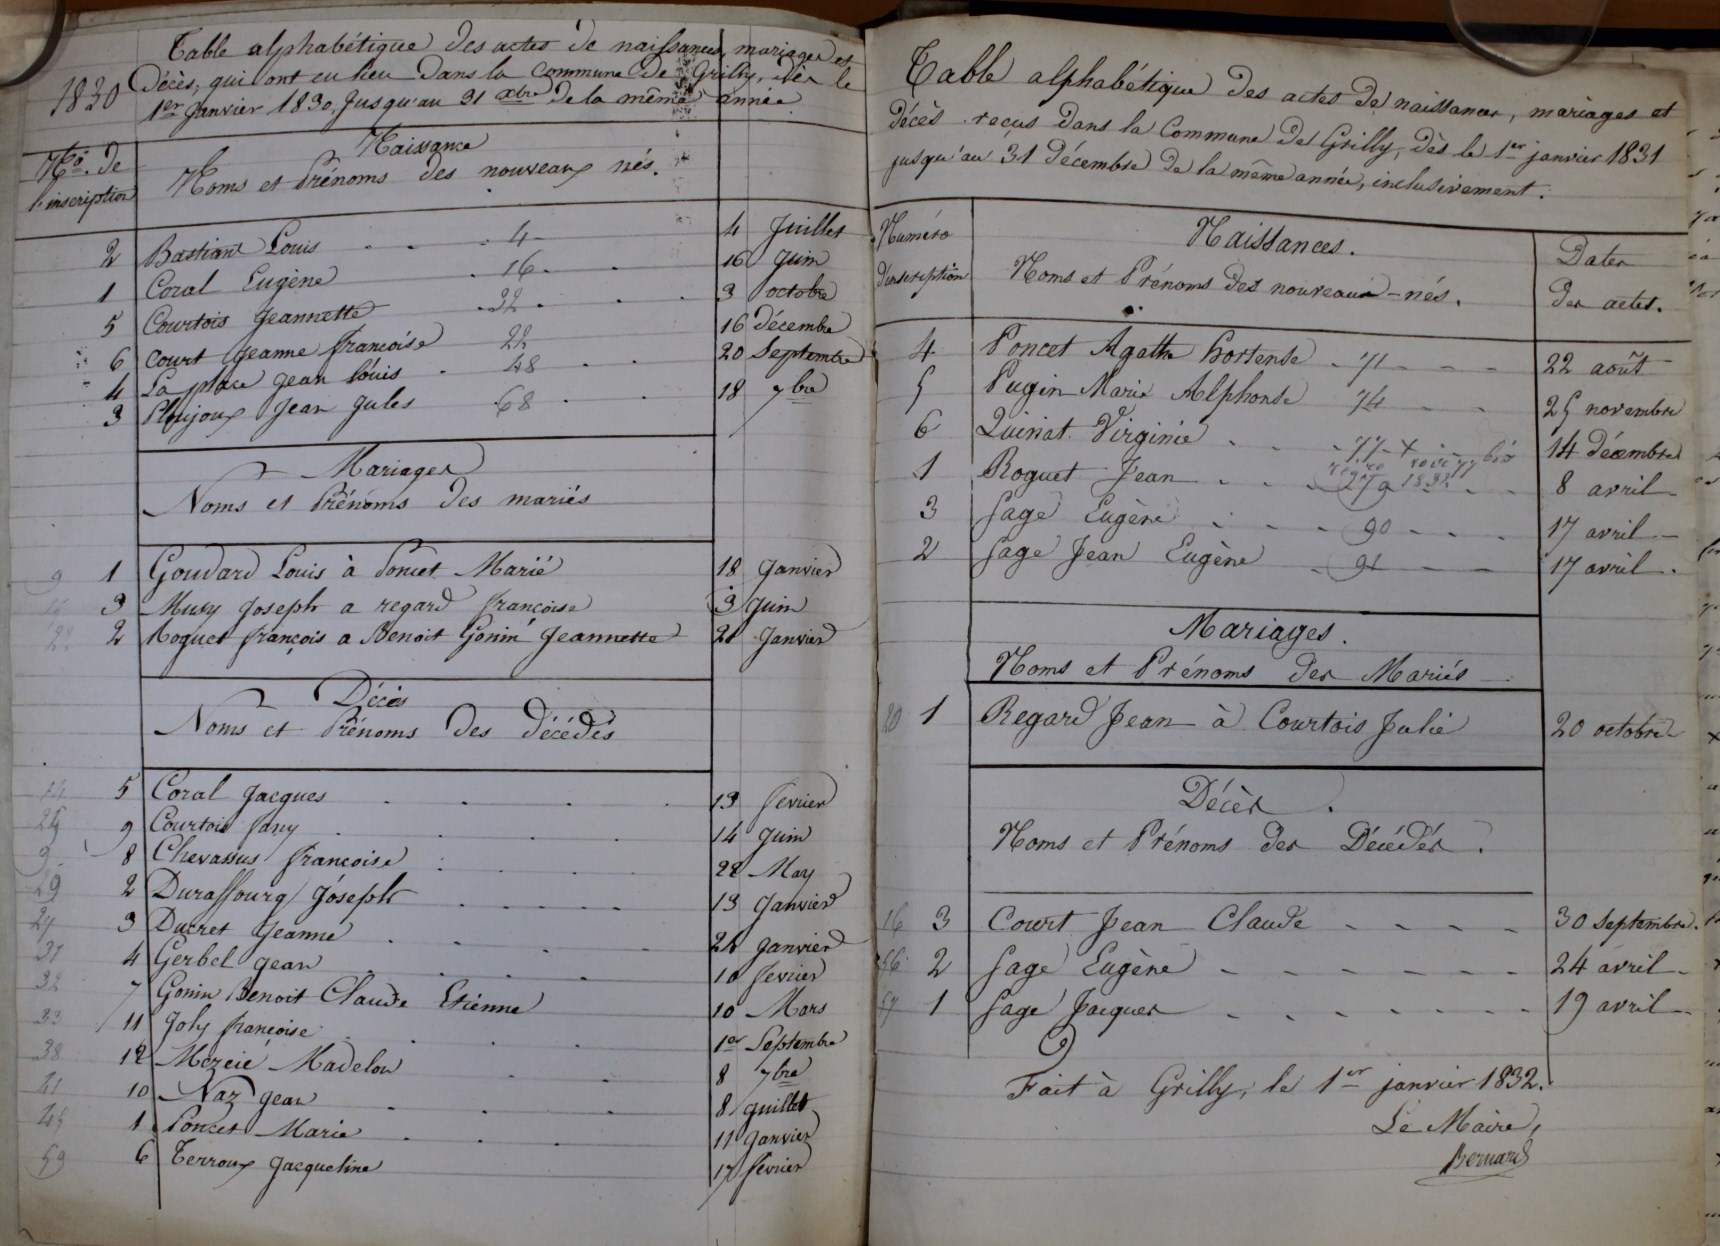 1830
Table alphabétique des actes de naissances, mariages et
Décès, qui ont eu lieu dans la commune de Grilly, dès le
1er Janvier 1830, Jusqu'au 31 xbre de la même année
No. de
l'inscription
Naissance
Noms et Prénoms des nouveaux nés.
2 Bastian Louis 4 4 Juillet
1 Coral Eugène 16 16 Juin
5 Courtois Jeannette 22 3 octobre
6 Court Jeanne françoise 22 16 décembre
4 La place Jean Louis 48 20 Septembre
3 Ploujoux Jean Jules 68 18 7bre
Mariages
Noms et Prénoms des mariés
9 1 Goudard Louis à Poncet Marie 18 Janvier
3 Mury Joseph a regard françoise 3 Juin
2 Roguet françois a Benoit Gonin Jeannette 21 Janvier
Décès
Noms et Prénoms des décédés
14 5 Coral Jacques 13 fevrier
9 Courtois fany 14 Juin
8 Chevassus francoise 22 May
2 Duraffourg Joseph 13 Janvier
3 Ducret Jeanne 24 Janvier
31 4 Gerbel Jean 10 fevrier
32 7 Gonin Benoit Claude Etienne 10 Mars
33 11 Joly francoise 1er Septembre
38 12 Mezeié Madelon 8 7bre
41 10 Naz Jean 8 Juillet
1 Poncet Marie 11 Janvier
59 6 Terroux Jacqueline 17 fevrier
Table alphabétique des actes de naissances, mariages et
décès recus dans la Commune de Grilly, dès le 1er janvier 1831
jusqu'au 31 décembre de la même année, inclusivement.
Numéro
d'inscription
Naissances.
Noms et Prénoms des nouveaux-nés.
Dates
des actes.
4 Poncet Agathe hortense 71 22 août
5 Pugin Marie Alphonse 74 25 novembre
6 Quinat Virginie 77 14 décembre
1 Roguet Jean 79 8 avril
3 Sage Eugène 90 17 avril
2 Sage Jean Eugène 91 17 avril
Mariages.
Noms et Prénoms des Mariés
20 1 Regard Jean à Courtois Julie 20 octobre
Décès.
Noms et Prénoms des Décédés.
16 3 Court Jean Claude 30 Septembre.
56 2 Sage Eugène 24 avril
57 1 Sage Jacques 19 avril
Fait à Grilly, le 1er janvier 1832.
Le Maire,
Bernard